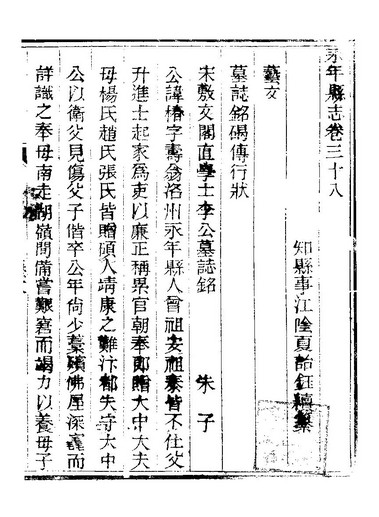 永年縣志卷三十八
知縣事江陰夏詒鈺續纂
藝文
墓誌銘碣傳行狀
宋敷文閣直學士李公墓誌銘 朱子
公諱椿字壽翁洺州永年縣人曾祖安祖泰皆不仕父
升進士起家爲吏以廉正稱累官朝奉郎贈大中大夫
母楊氏趙氏張氏皆贈碩人靖康之難汴都失守大中
公以衛父見傷父子偕卒公年尙少藁殯佛屋深窽而
詳識之奉母南走湖嶺間備嘗艱窘而竭力以養母子